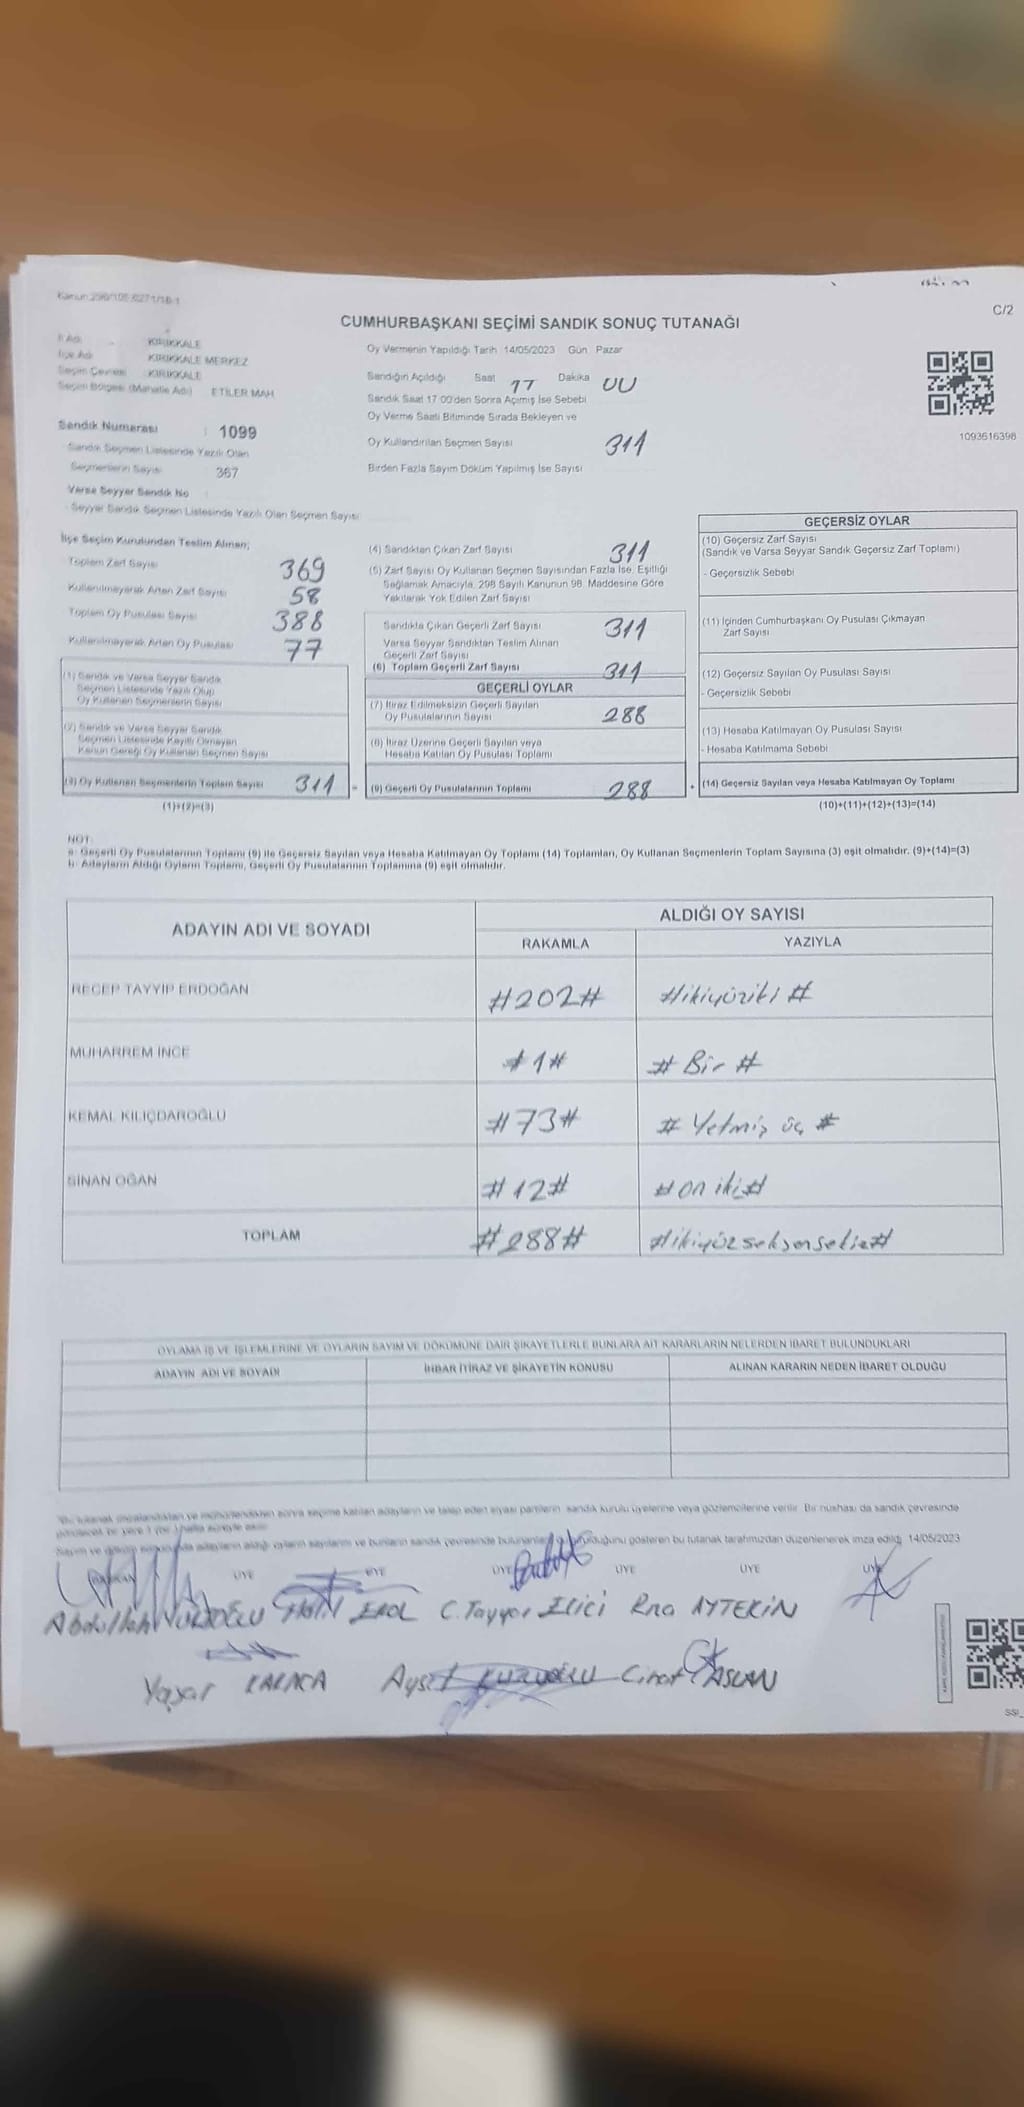 Kanun:298/105,6271/18-1
C/2
CUMHURBAŞKANI SEÇİMİ SANDIK SONUÇ TUTANAĞI
İl Adı KIRIKKALE
İlçe Adı KIRIKKALE MERKEZ
Seçim Çevresi KIRIKKALE
Seçim Bölgesi (Mahalle Adı) ETİLER MAH
Sandık Numarası : 1099
- Sandık Seçmen Listesinde Yazılı Olan
Seçmenlerin Sayısı 367
Varsa Seyyar Sandık No
- Seyyar Sandık Seçmen Listesinde Yazılı Olan Seçmen Sayısı
Oy Vermenin Yapıldığı Tarih 14/05/2023 Gün Pazar
Sandığın Açıldığı Saat 17 Dakika 00
Sandık Saat 17:00'den Sonra Açımış İse Sebebi
Oy Verme Saati Bitiminde Sırada Bekleyen ve
Oy Kullandırılan Seçmen Sayısı 311
Birden Fazla Sayım Döküm Yapılmış İse Sayısı
1093616398
İlçe Seçim Kurulundan Teslim Alınan;
Toplam Zarf Sayısı 369
Kullanılmayarak Artan Zarf Sayısı 58
Toplam Oy Pusulası Sayısı 388
Kullanılmayarak Artan Oy Pusulası 77
(1) Sandık ve Varsa Seyyar Sandık
Seçmen Listesinde Yazılı Olup
Oy Kullanan Seçmenlerin Sayısı
(2) Sandık ve Varsa Seyyar Sandık
Seçmen Listesinde Kayıtlı Olmayan
Kanun Gereği Oy Kullanan Seçmen Sayısı
(3) Oy Kullanan Seçmenlerin Toplam Sayısı 311
(1)+(2)=(3)
(4) Sandıktan Çıkan Zarf Sayısı 311
(5) Zarf Sayısı Oy Kullanan Seçmen Sayısından Fazla İse, Eşitliği
Sağlamak Amacıyla, 298 Sayılı Kanunun 98. Maddesine Göre
Yakılarak Yok Edilen Zarf Sayısı
Sandıkta Çıkan Geçerli Zarf Sayısı 311
Varsa Seyyar Sandıktan Teslim Alınan
Geçerli Zarf Sayısı
(6) Toplam Geçerli Zarf Sayısı 311
GEÇERLİ OYLAR
(7) İtiraz Edilmeksizin Geçerli Sayılan
Oy Pusulalarının Sayısı 288
(8) İtiraz Üzerine Geçerli Sayılan veya
Hesaba Katılan Oy Pusulası Toplamı
= (9) Geçerli Oy Pusulalarının Toplamı 288
GEÇERSİZ OYLAR
(10) Geçersiz Zarf Sayısı
(Sandık ve Varsa Seyyar Sandık Geçersiz Zarf Toplamı)
- Geçersizlik Sebebi
(11) İçinden Cumhurbaşkanı Oy Pusulası Çıkmayan
Zarf Sayısı
(12) Geçersiz Sayılan Oy Pusulası Sayısı
- Geçersizlik Sebebi
(13) Hesaba Katılmayan Oy Pusulası Sayısı
- Hesaba Katılmama Sebebi
+ (14) Geçersiz Sayılan veya Hesaba Katılmayan Oy Toplamı
(10)+(11)+(12)+(13)=(14)
NOT:
a- Geçerli Oy Pusulalarının Toplamı (9) ile Geçersiz Sayılan veya Hesaba Katılmayan Oy Toplamı (14) Toplamları, Oy Kullanan Seçmenlerin Toplam Sayısına (3) eşit olmalıdır. (9)+(14)=(3)
b- Adayların Aldığı Oyların Toplamı, Geçerli Oy Pusulalarının Toplamına (9) eşit olmalıdır.
ADAYIN ADI VE SOYADI ALDIĞI OY SAYISI
RAKAMLA YAZIYLA
RECEP TAYYİP ERDOĞAN #202# #ikiyüziki#
MUHARREM İNCE #1# # Bir #
KEMAL KILIÇDAROĞLU #73# # Yetmiş üç #
SİNAN OĞAN #12# #on iki#
TOPLAM #288# #ikiyüzseksensekiz#
OYLAMA İŞ VE İŞLEMLERİNE VE OYLARIN SAYIM VE DÖKÜMÜNE DAİR ŞİKAYETLERLE BUNLARA AİT KARARLARIN NELERDEN İBARET BULUNDUKLARI
ADAYIN ADI VE SOYADI İHBAR İTİRAZ VE ŞİKAYETİN KONUSU ALINAN KARARIN NEDEN İBARET OLDUĞU
imzalandıktan ve mühürlendikten sonra seçime katılan adayların ve talep eden siyasi partilerin sandık kurulu üyelerine veya gözlemcilerine verilir. Bir nüshası da sandık çevresinde
Sayım ve döküm adayların aldığı oyların sayılarını ve bunların sandık çevresinde gösteren bu tutanak tarafımızdan düzenlenerek imza edildi. 14/05/2023
BAŞKAN ÜYE ÜYE ÜYE ÜYE ÜYE ÜYE
Abdullah Halil EROL C. Tayyar Rna AYTEKİN
Yaşar KARACA Ayşe ASLAN